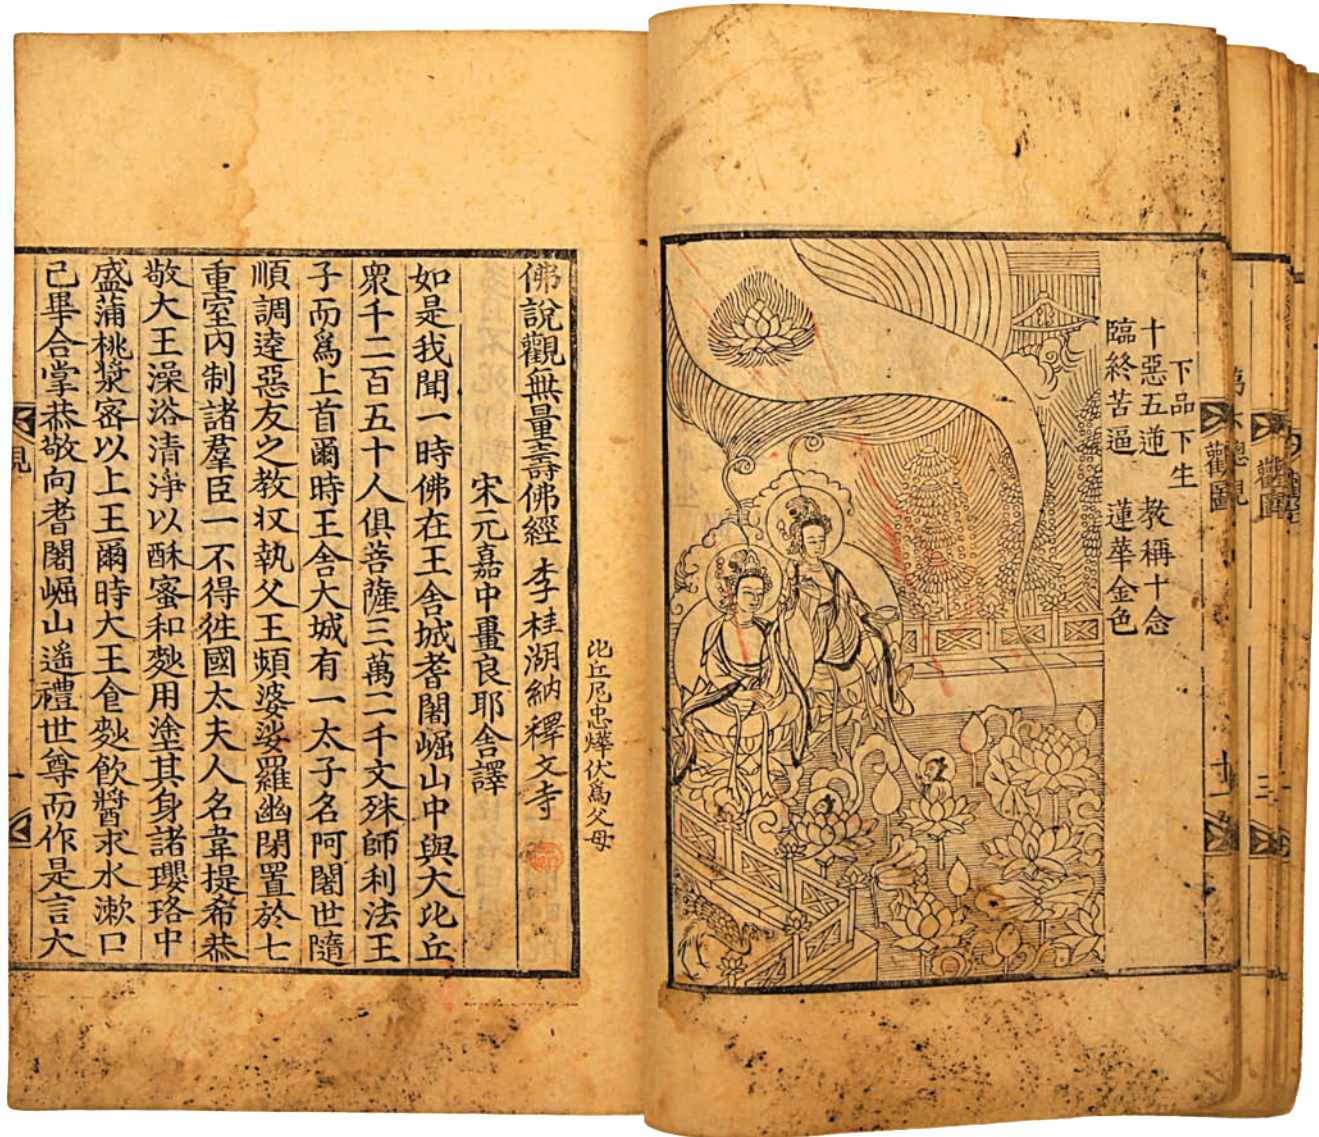 下品下生
十惡五逆　教稱十念
臨終苦逼　蓮華金色
觀圖
十一
觀圖
三
比丘尼忠燁伏爲父母
佛說觀無量壽佛經　李桂湖納釋文寺
宋元嘉中畺良耶舍譯
如是我聞一時佛在王舍城耆闍崛山中與大比丘
衆千二百五十人俱菩薩三萬二千文殊師利法王
子而爲上首爾時王舍大城有一太子名阿闍世隨
順調達惡友之教収執父王頻婆娑羅幽閉置於七
重室內制諸羣臣一不得徃國太夫人名韋提希恭
敬大王澡浴清淨以酥蜜和麨用塗其身諸瓔珞中
盛蒲桃漿密以上王爾時大王食麨飲醤求水漱口
已畢合掌恭敬向耆闍崛山遙禮世尊而作是言大